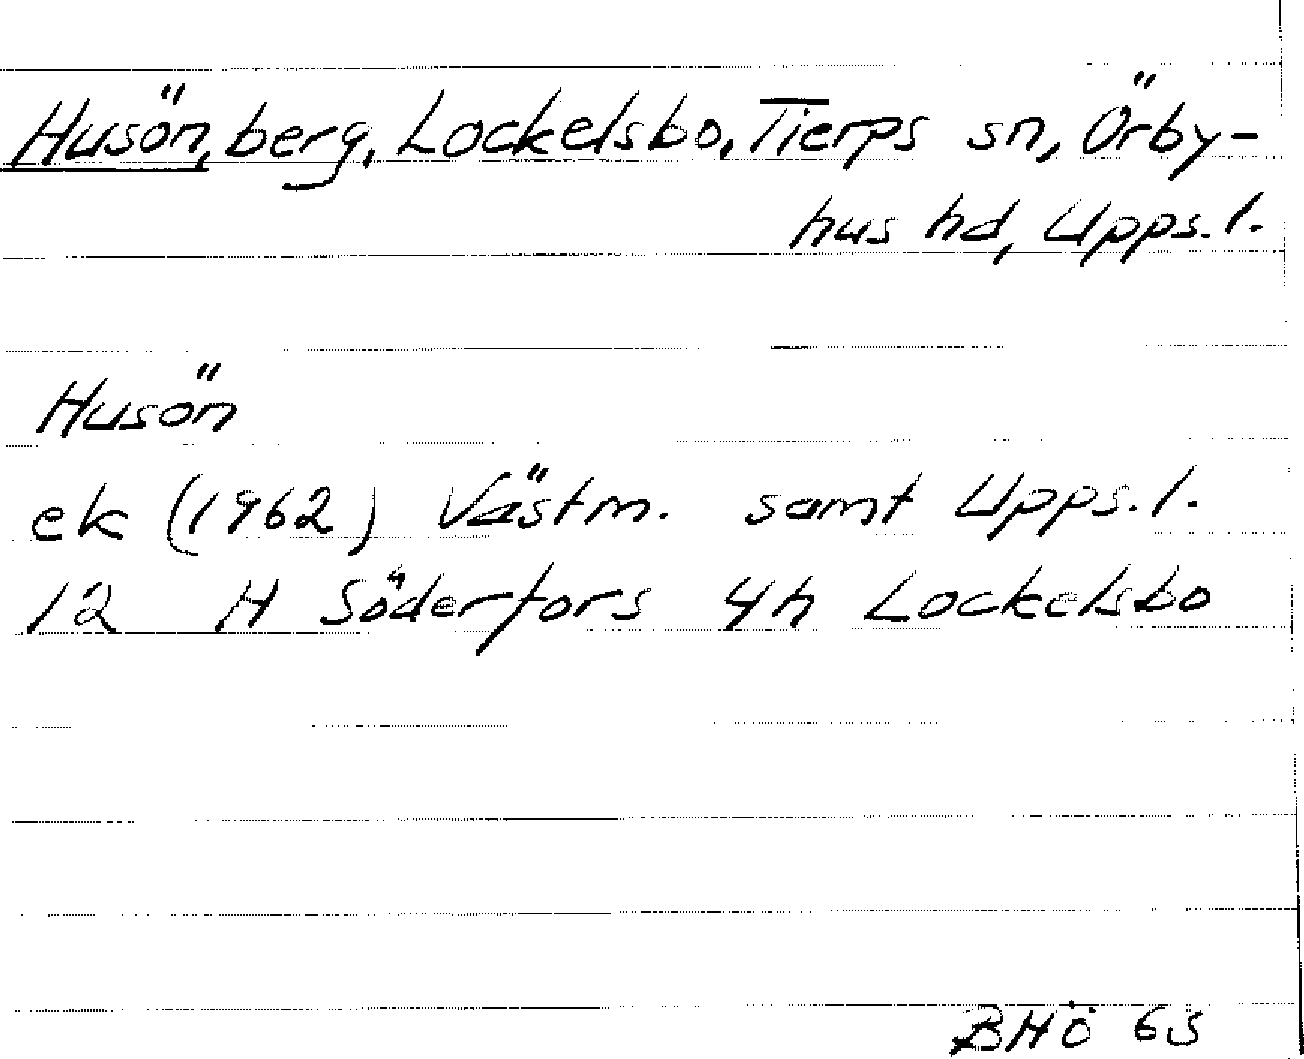 Husön, berg, Lockelsbo, Tierps sn, Örby-
hus hd, Upps. l.
Husön
ek (1962) Västm. samt Upps. l.
12 H Söderfors 4h Lockelsbo
BHÖ 63